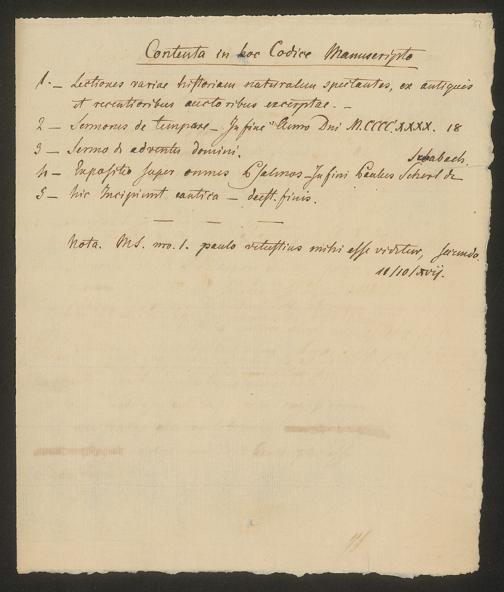 Contenta in hoc Codice Manuscripto
1. – Lectiones variae historiam naturalem spectantes, ex antiquis
et recentioribus auctoribus excerptae. –
2 – Sermones de tempore – In fine Anno Dni M.CCCC.XXXX. 18
3 – Sermo de adventu domini.
Schabach.
4 – Expositio super omnes Psalmos – In fini Paulus Scherl de
5 – hic Incipiunt cantica – deest. finis.
Nota. MS. nro. 1. paulo vetustius mihi esse videtur, secundo.
18/10/xvij.